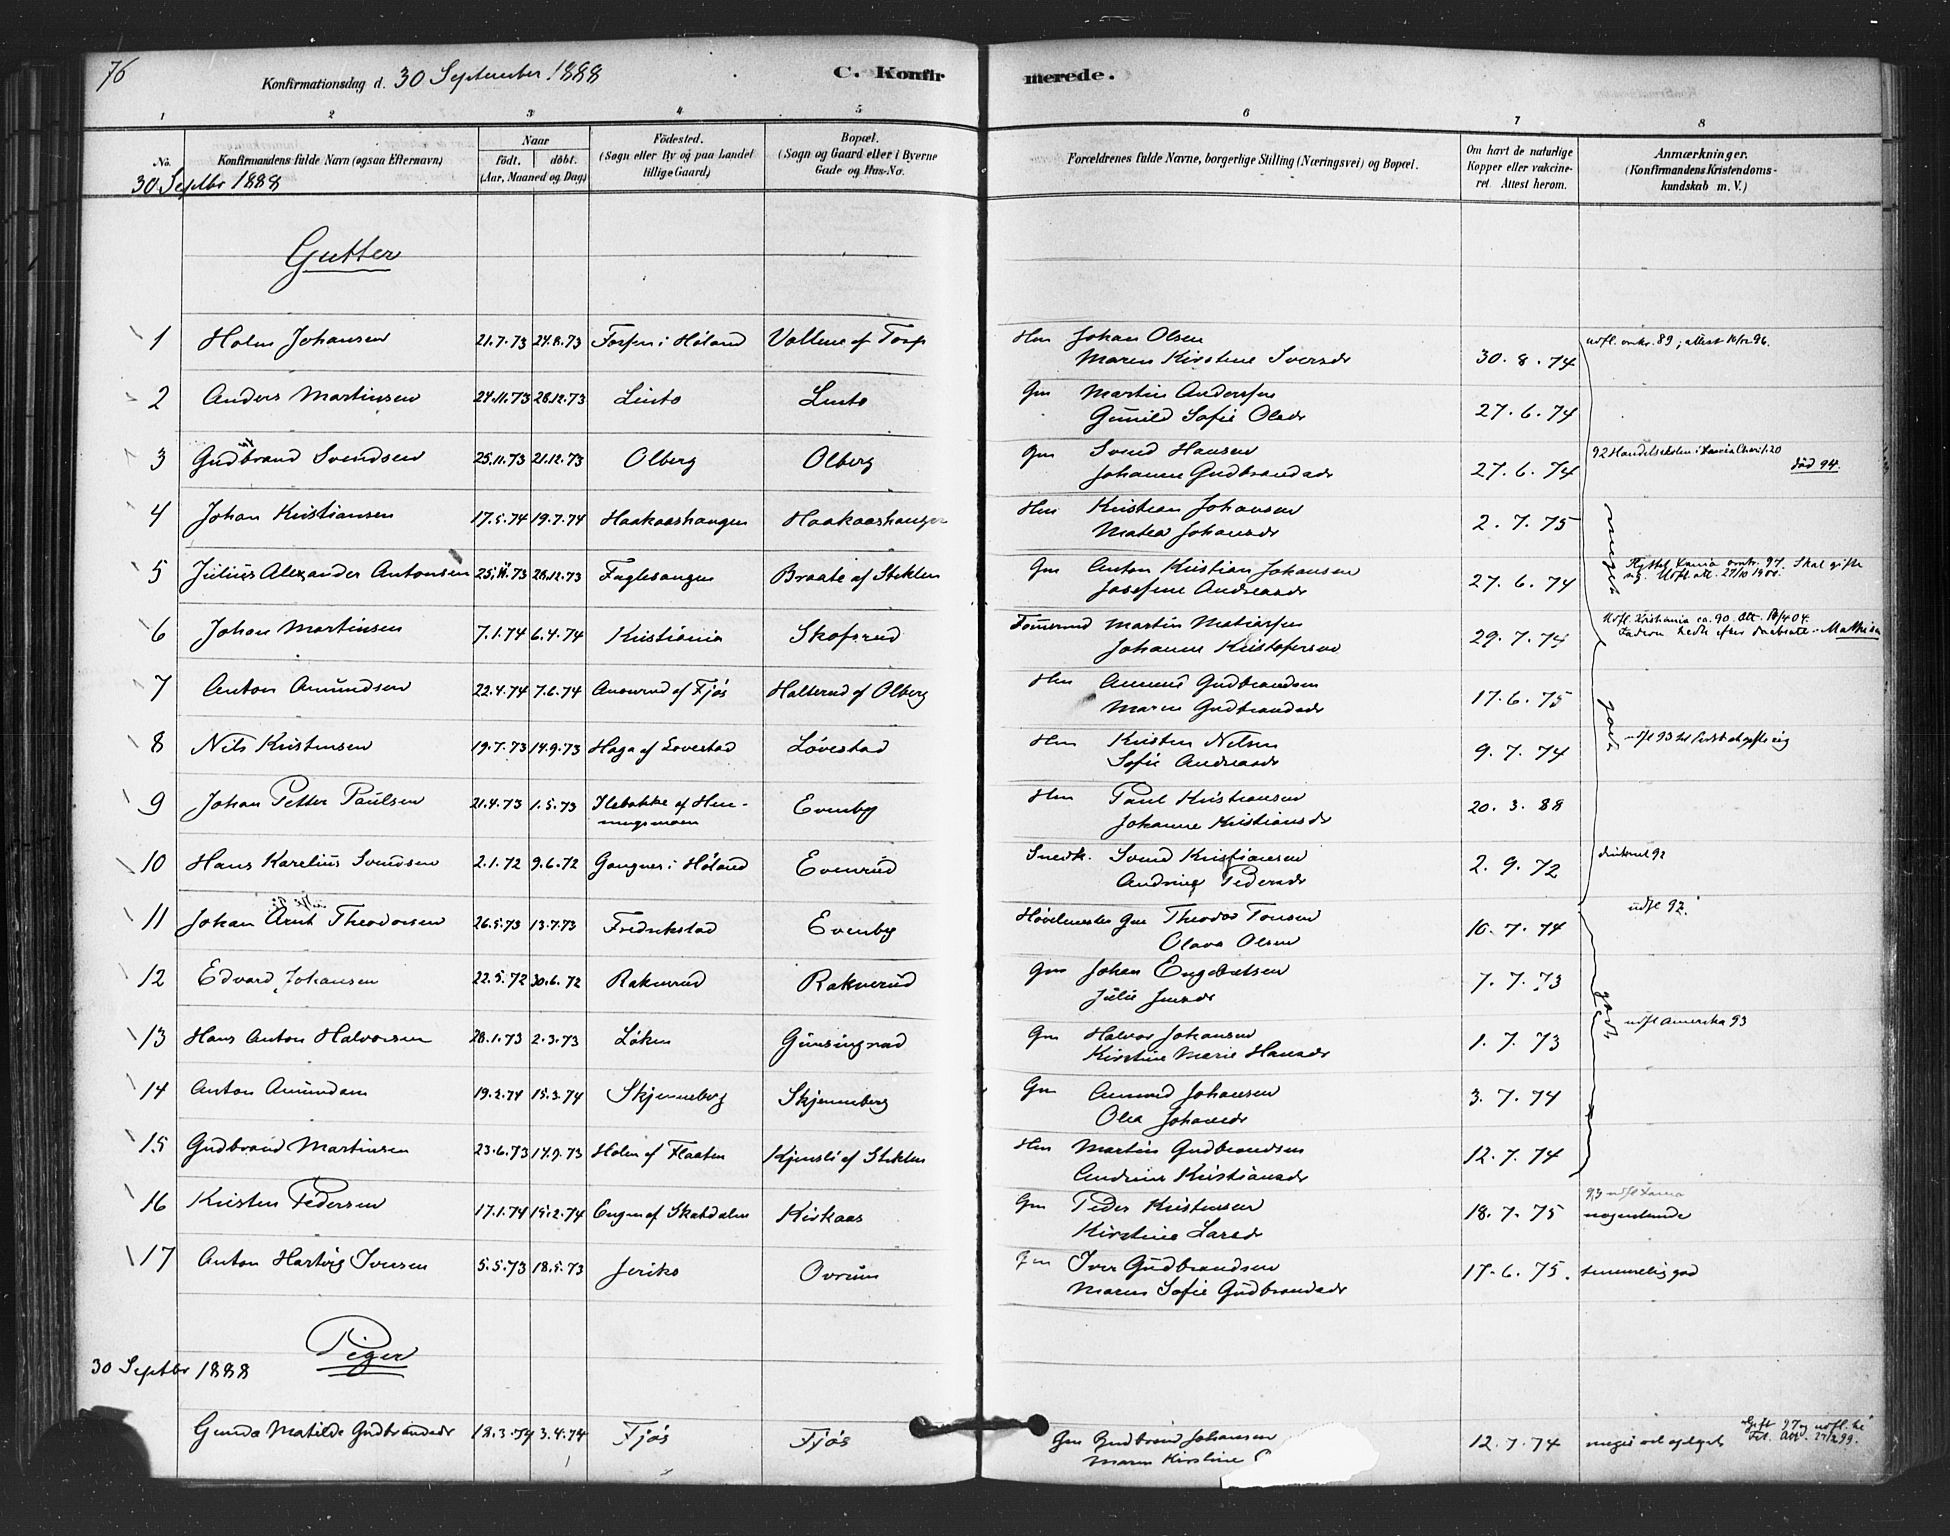 76
Konfirmationsdag d. 30 September 1888
C. Konfirmerede.
1 2 3 4 5 6 7 8
No.
Konfirmandens fulde Navn (ogsaa Efternavn)
Naar
födt. döbt.
(Aar, Maaned og Dag)
Födested.
(Sogn eller By og paa Landet
tillige Gaard)
Bopæl.
(Sogn og Gaard eller i Byerne
Gade og Hus-No.
Forældrenes fulde Navne, borgerlige Stilling (Næringsvei) og Bopæl.
Om havt de naturlige
Kopper eller vakcine-
ret. Attest herom.
Anmærkninger.
(Konfirmandens Kristendoms-
kundskab m. V.)
30 Septbr 1888
Gutter
1 Holm Johansen 21.7.73 24.8.73 Torpen i Høland Vollene af Torp Hm Johan Olsen 30.8.74 udfl. omkr. 89; attest
Maren Kirstine Iversdr
2 Anders Martinsen 24.11.73 28.12.73 Linto Linto Gm Martin Andersen 27.6.74
Gunild Sofie Olsdr
3 Gudbrand Svendsen 25.11.73 21.12.73 Olberg Olberg Gm Svend Hansen 27.6.74 92 Handelsskolen i
Johanne Gudbrandsdr død 94.
4 Johan Kristiansen 17.5.74 19.7.74 Haakaashaugen Haakaashaugen Hm Kristian Johansen 2.7.75
Matea Johansdr
meget
5 Julius Alexander Antonsen 25.11.73 26.12.73 Fuglesangen Braate af Stiklen Gm Anton Kristian Johansen 27.6.74 Flyttet Kania omkr. 97. Skal gifte
Josefine Andreasdr sig. Udfl. att. 27/10 1901.
6 Johan Martinsen 7.1.74 6.4.74 Kristiania Skofsrud Tømmermd Martin Matiassen 29.7.74 Udfl. Kristiania ca. 90. Att.
Johanne Kristofersen Mathisen
7 Anton Amundsen 22.4.74 7.6.74 Aaserud af Fjøs Halterud af Olberg Hm Amund Gudbrandsen 17.6.75
Maren Gudbrandsdr
godt
8 Nils Kristensen 19.7.73 14.9.73 Haga af Lovestad Løvestad Hm Kristen Nilsen 9.7.74 udfl 93
Sofie Andreasdr
9 Johan Petter Paulsen 21.4.73 1.5.73 Ilebakke af Hen- Evenby Hm Paul Kristiansen 20.3.88
ningsmoen Johanne Kristiansdr
10 Hans Karelius Svendsen 2.1.72 9.6.72 Gangnes i Høland Evenrud Snedk. Svend Kristiansen 2.9.72
Andrine Pedersdr
11 Johan Arnt Theodorsen 26.5.73 13.7.73 Fredrikstad Evenby Høvelmester Gm Theodor Tonsen 10.7.74 udfl 92.
Olava Olsen
12 Edvard Johansen 22.5.72 30.6.72 Rakverud Rakverud Gm Johan Engebretsen 7.7.73
Julie Jensdr
godt
13 Hans Anton Halvorsen 28.1.73 2.3.73 Løken Gunsingrud Gm Halvor Johansen 1.7.73 udfl Amerika 93
Kirstine Marie Hansdr
14 Anton Amundsen 19.2.74 15.3.74 Skjenneberg Skjenneberg Gm Amund Johansen 3.7.74
Olea Johansdr
15 Gudbrand Martinsen 23.6.73 14.9.73 Holm af Flaaten Kjensli af Stiklen Hm Martin Gudbrandsen 12.7.74
Andrine Kristiansdr
16 Kristen Pedersen 17.1.74 15.2.74 Engen af Skatdalen Kirkaas Gm Peder Kristensen 18.7.75 93 udfl Kania
Kirstine Larsdr nogenlunde
17 Anton Hartvig Iversen 5.5.73 18.5.73 Jeriko Ovrum Gm Iver Gudbrandsen 17.6.75. temmelig god
Maren Sofie Gudbrandsdr
Piger
30 Septbr 1888
Gunda Matilde Gudbrandsdr 18.3.74 3.4.74 Fjøs Fjøs Gm Gudbrand Johansen 12.7.74 meget vel oplyst Gift 97 og udfl. til
Maren Kirstine